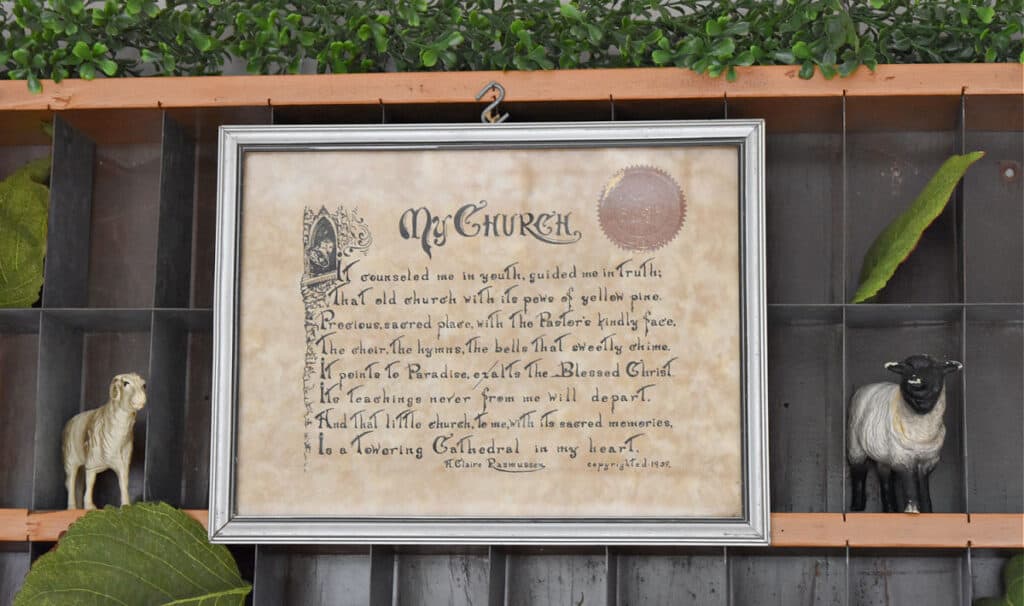 My Church
It counseled me in youth, guided me in Truth;
That old church with its pews of yellow pine.
Precious, sacred place, with the Pastor's kindly face,
The choir, the hymns, the bells that sweetly chime.
It points to Paradise, exalts the Blessed Christ
Its teachings never from me will depart.
And that little church, to me, with its sacred memories,
Is a Towering Cathedral in my heart.
A. Claire Rasmussen copyrighted 1939.